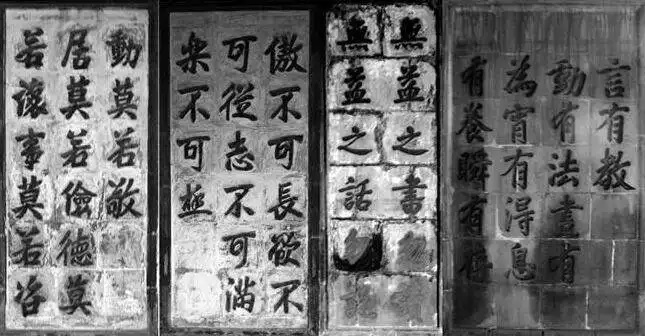 言有教
動有法晝有
為宵有得息
有養瞬有存
無益之書勿
無益之話勿
傲不可長欲不
可從志不可滿
樂不可極
動莫若敬
居莫若儉德莫
若讓事莫若咨